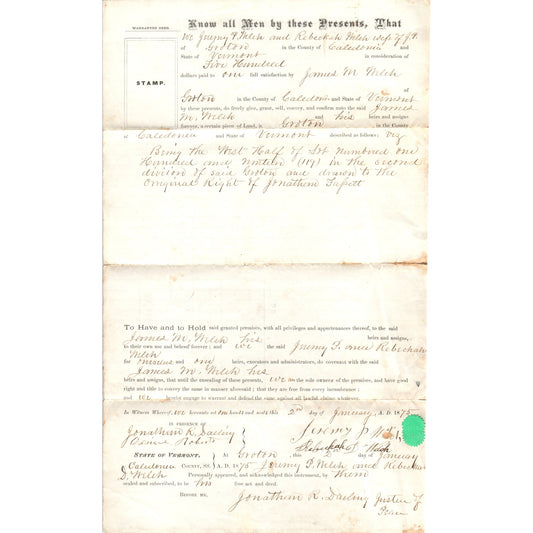 WARRANTEE DEED.
Know all Men by these Presents, That
We Jeremy P. Welch and Rebeckah Welch wife of J. P.
of Groton in the County of Caledonia and
State of Vermont in consideration of
Five Hundred
dollars paid to our full satisfaction by James M. Welch
STAMP.
Groton in the County of Caledonia and State of Vermont
by these presents, do freely give, grant, sell, convey, and confirm unto the said James
M. Welch and his heirs and assigns
forever, a certain piece of Land, in Groton in the County
of Caledonia and State of Vermont described as follows: viz
Being the West Half of Lot Numbered one
Hundred and Nineteen (119) in the second
division of said Groton and drawn to the
Original Right of Jonathan Fassett
To Have and to Hold said granted premises, with all privileges and appurtenances thereof, to the said
James M. Welch his heirs and assigns,
to their own use and behoof forever; and we the said Jeremy P. and Rebeckah
Welch
for ourselves and our heirs, executors and administrators, do covenant with the said
James M. Welch his
heirs and assigns, that until the ensealing of these presents, we are the sole owners of the premises, and have good
right and title to convey the same in manner aforesaid; that they are free from every incumbrance;
and we hereby engage to warrant and defend the same against all lawful claims whatever.
In Witness Whereof, we hereunto set our hand and seal this 2nd day of January A. D. 1875
IN PRESENCE OF
Jonathan R. Darling
Roberts
Jeremy P. Welch
Rebeckah D. Welch
STATE OF VERMONT, At Groton, this 2 day of January
Caledonia COUNTY, SS. A. D. 1875 Jeremy P. Welch and Rebeckah
D. Welch Personally appeared, and acknowledged this instrument, by them
sealed and subscribed, to be his free act and deed.
BEFORE ME, Jonathan R. Darling Justice of
Peace